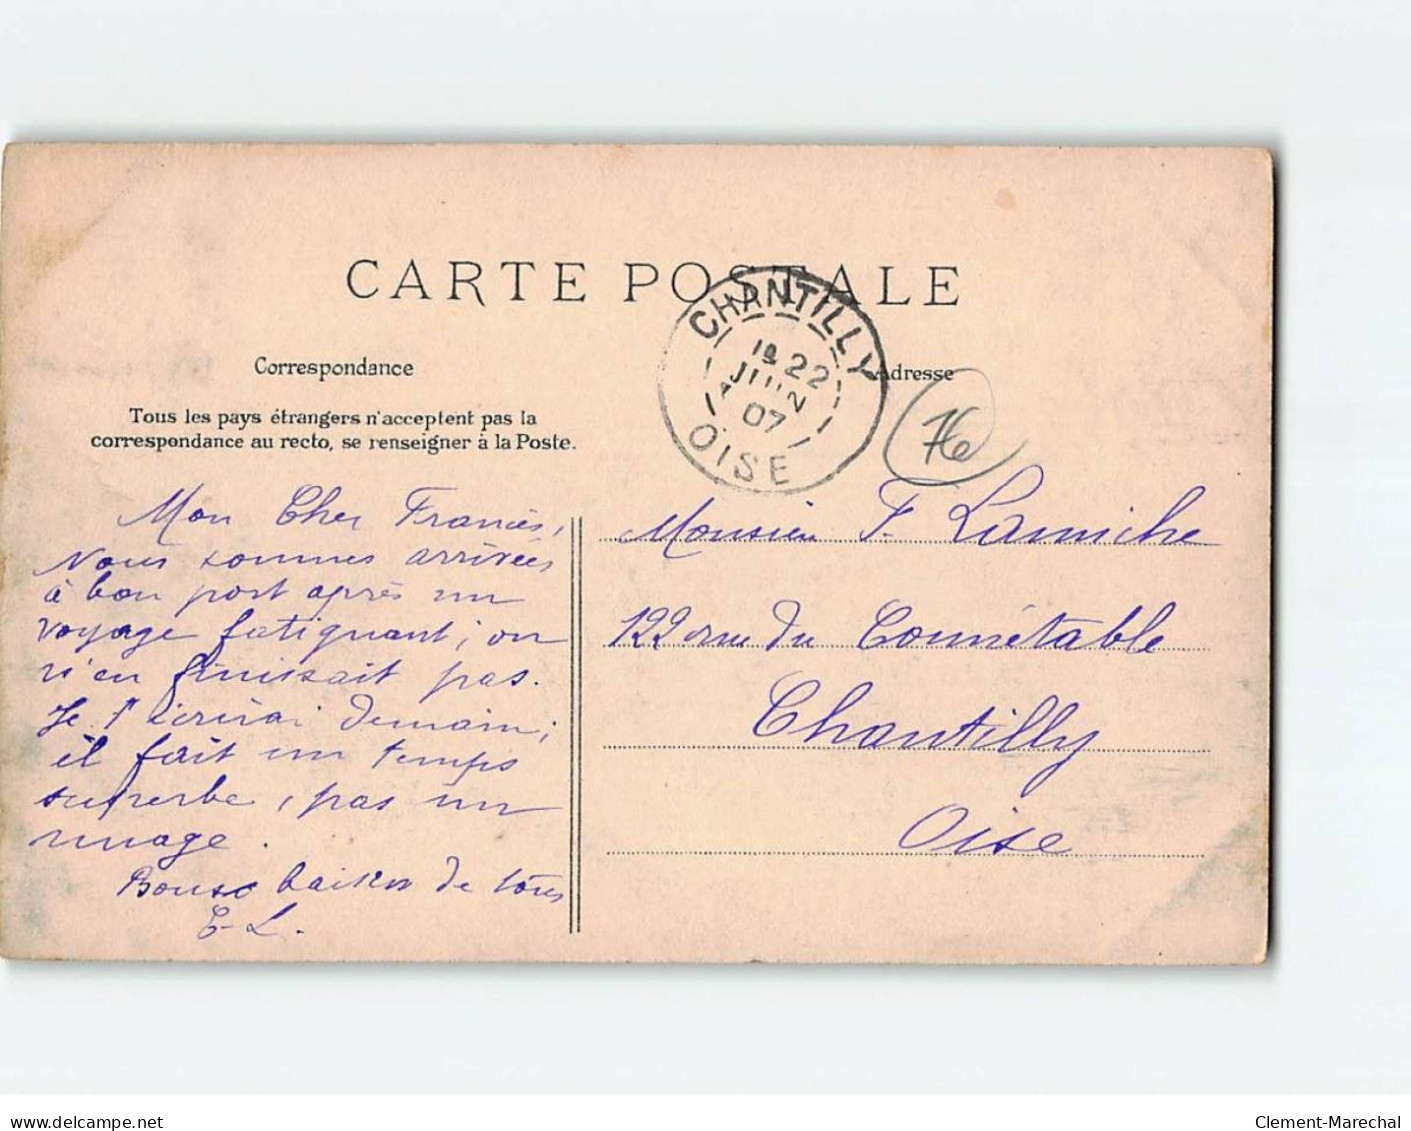 CARTE POSTALE
Correspondance
Adresse
Tous les pays étrangers n'acceptent pas la
correspondance au recto, se renseigner à la Poste.
CHANTILLY
22
07
OISE
76
Mon Cher Francis,
Nous sommes arrivées
à bon port après un
voyage fatiguant ; on
n'en finissait pas.
Je t'écrirai demain ;
il fait un temps
superbe, pas un
nuage.
Bons baisers de tous
E. L.
Monsieur F. Lamiche
122 rue du Connétable
Chantilly
Oise
www.delcampe.net
Clement-Marechal